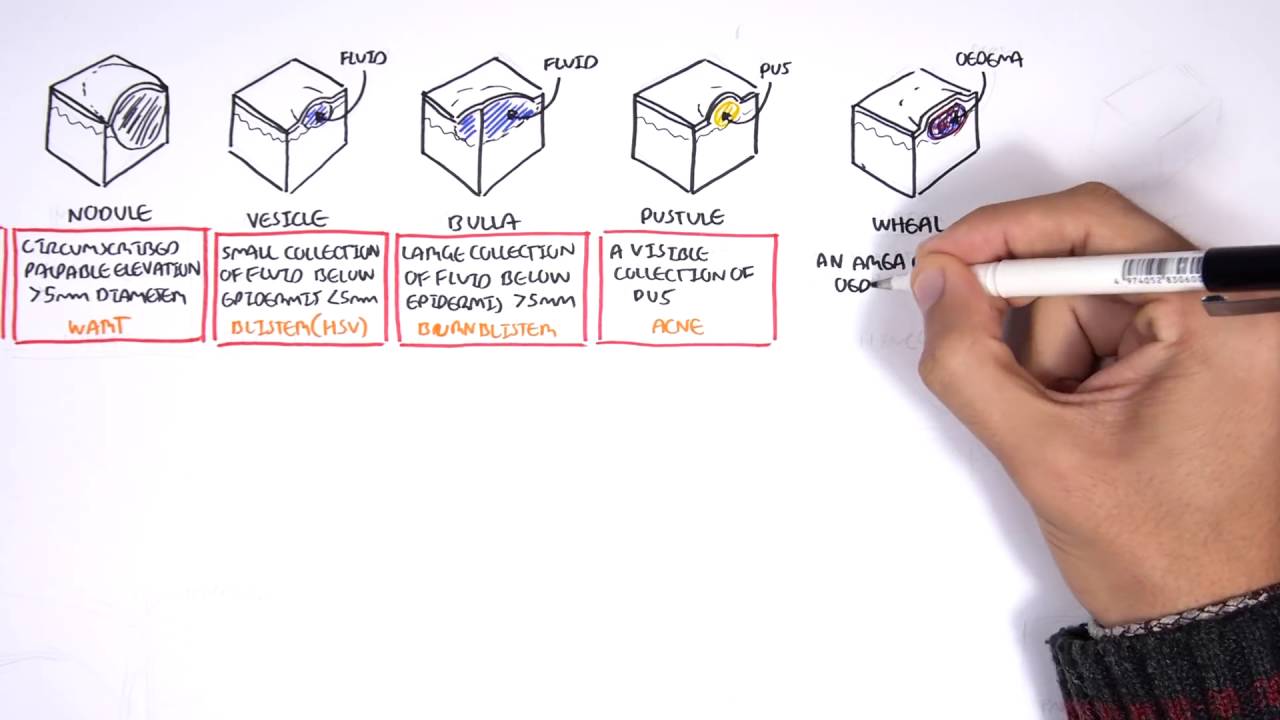 FLUID
FLUID
PUS
OEDEMA
NODULE
VESICLE
BULLA
PUSTULE
WHEAL
CIRCUMSCRIBED
PALPABLE ELEVATION
>5mm DIAMETER
WART
SMALL COLLECTION
OF FLUID BELOW
EPIDERMIS <5mm
BLISTER(HSV)
LARGE COLLECTION
OF FLUID BELOW
EPIDERMIS >5mm
BURN BLISTER
A VISIBLE
COLLECTION OF
PUS
ACNE
AN AREA
OED